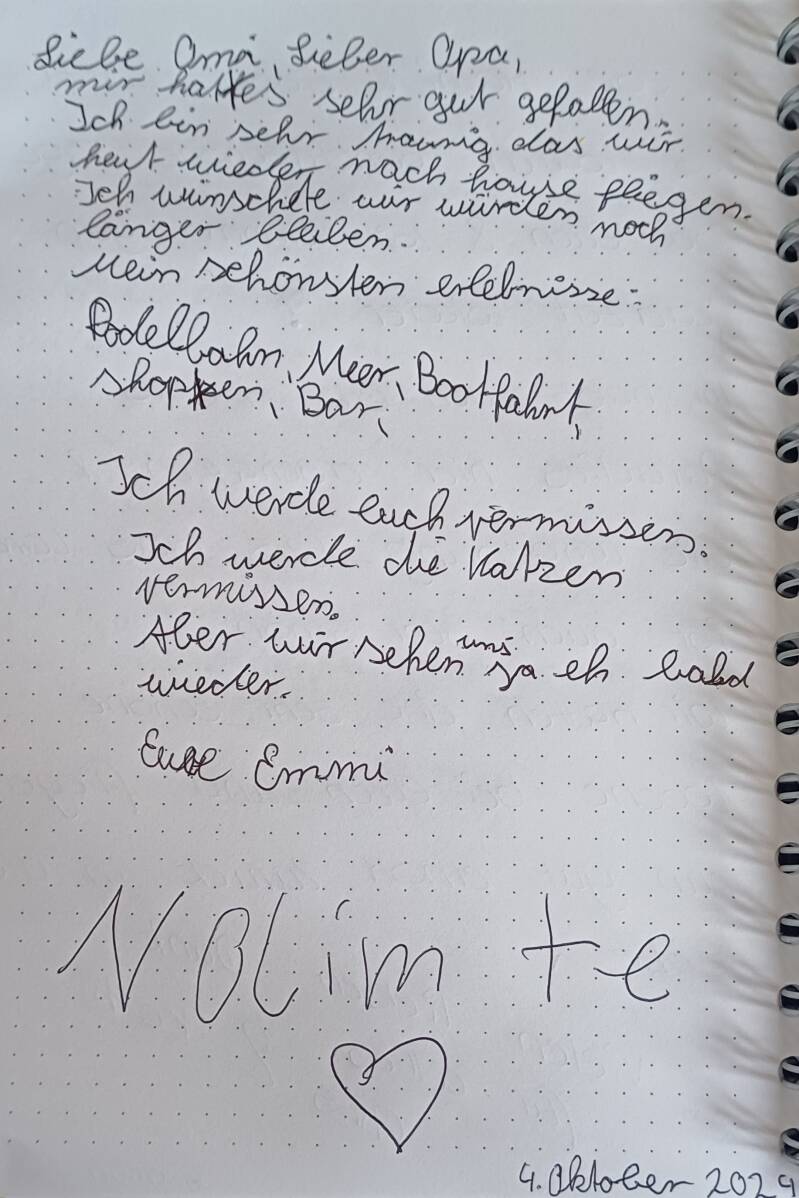 Liebe Omi, Lieber Opa,
mir hattes sehr gut gefallen.
Ich bin sehr traurig das wir
heut wieder nach hause fliegen.
Ich wünschete wir würden noch
länger bleiben.
Mein schönsten erlebnisse:
Rodelbahn, Meer, Bootfahrt,
shoppen, Bar,
Ich werde euch vermissen.
Ich werde die Katzen
vermissen.
Aber wir sehen uns ja eh bald
wieder.
Eure Emmi
Volim te
4. Oktober 2024